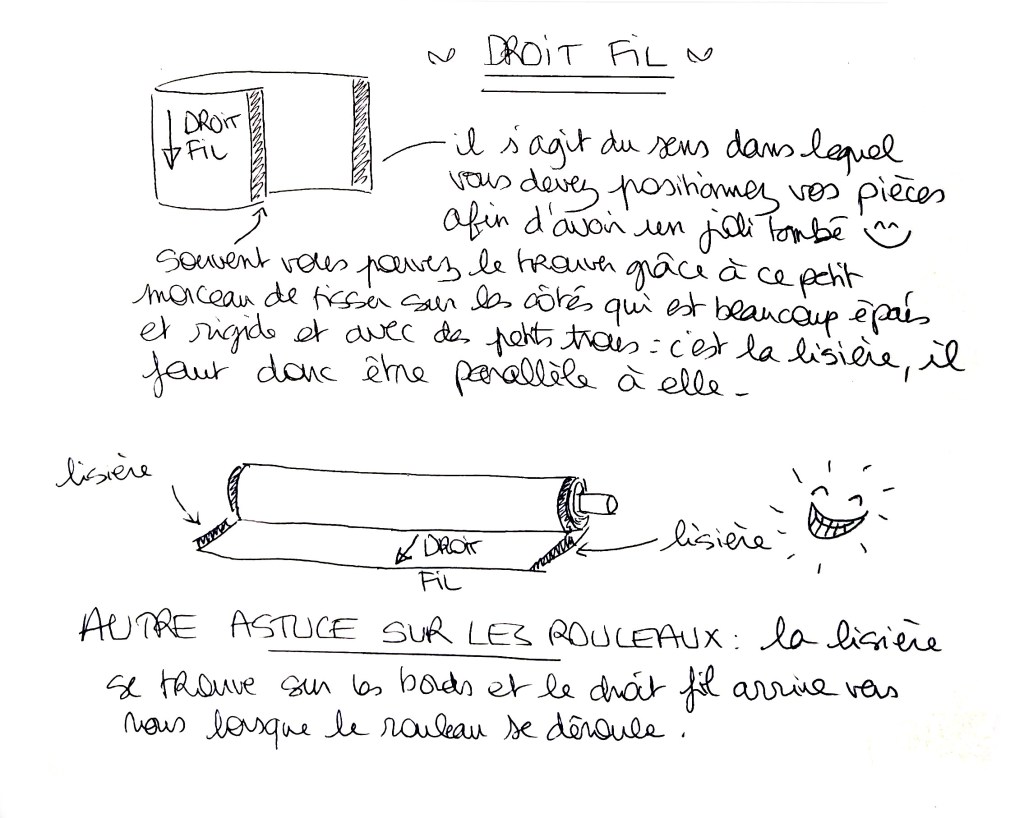 ~ DROIT FIL ~
DROIT
FIL
il s'agit du sens dans lequel
vous devez positionnez vos pièces
afin d'avoir un joli tombé
Souvent vous pouvez le trouver grâce à ce petit
morceau de tisser sur les côtés qui est beaucoup épais
et rigide et avec des petits trous : c'est la lisière, il
faut donc être parallèle à elle -
lisière
DROIT
FIL
lisière
AUTRE ASTUCE SUR LES ROULEAUX : la lisière
se trouve sur les bords et le droit fil arrive vers
nous lorsque le rouleau se déroule .